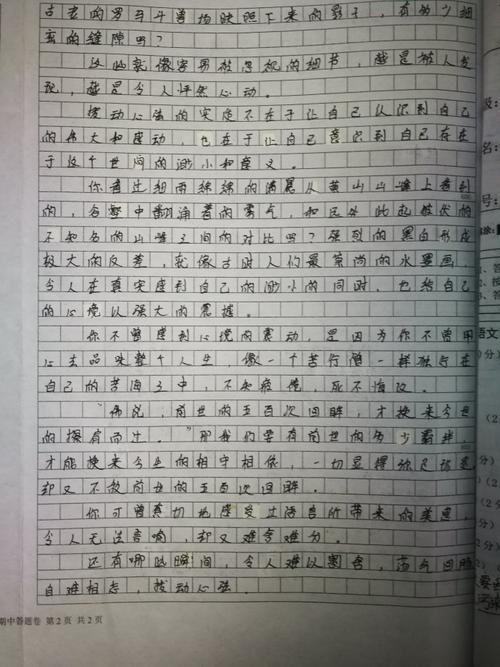 古老的罗马斗兽场映照下来的影子，有多少细
密的缝隙吗？
这些就像容易被忽视的细节，越是被人发
现，越是令人怦然心动。
拨动心弦的实定不在于让自己认识到自己
的伟大和感动，也在于让自己意识到自己存在
于这个世间的渺小和意义。
你看过细雨绵绵的清晨从黄山山峰上看到
的，谷壑中翻涌着的雾气，和远处此起彼伏的
不知名的山峰之间的对比吗？强烈的黑白形成
极大的反差，就像古时人们最崇尚的水墨画，
令人在真实感到自己的渺小的同时，也给自己
的心境以强大的震撼。
你不曾感到心境的震动，是因为你不曾用
心去品味整个人生，像一个苦行僧一样独行在
自己的苦海之中，不知疲倦，死不悔改。
“佛说，前世的五百次回眸，才换来今世
的擦肩而过。”那我们要有前世的多少羁绊，
才能换来今生的相守相依，一切显得弥足珍贵
却又不敌前世的五百次回眸。
你可曾真切地感受过语言所带来的美感，
令人无法言喻，却又难舍难分。
还有哪些瞬间，令人难以割舍，荡气回肠
自难相忘，拨动心弦。
期中答题卷 第2页 共2页
级：
名：
号：
语文